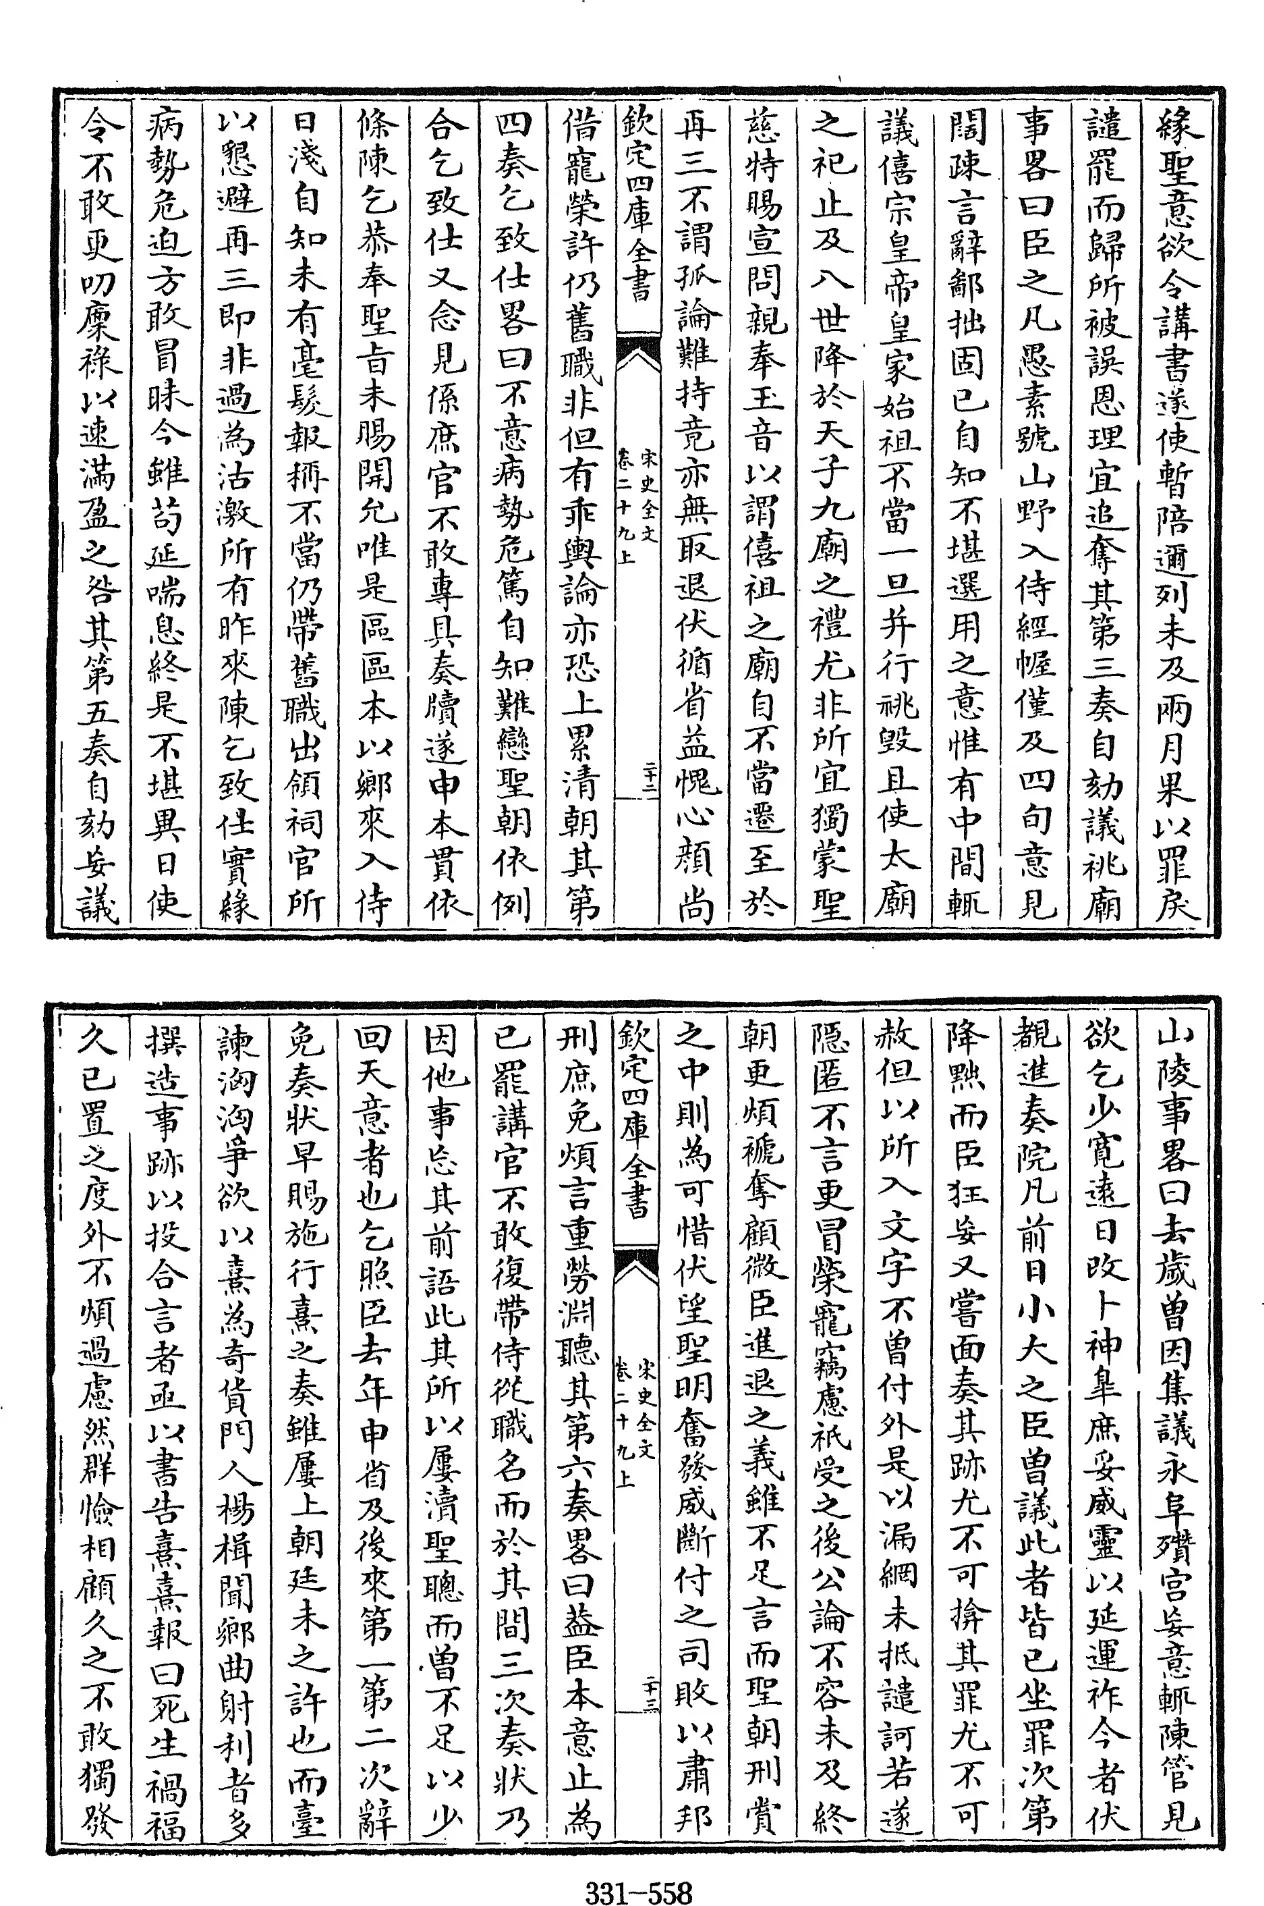 緣聖意欲令講書遂使暫陪邇列未及兩月果以罪戾
譴罷而歸所被誤恩理宜追奪其第三奏自劾議祧廟
事畧曰臣之凡愚素號山野入侍經幄僅及四旬意見
闊疎言辭鄙拙固已自知不堪選用之意惟有中間輒
議僖宗皇帝皇家始祖不當一旦并行祧毀且使太廟
之祀止及八世降於天子九廟之禮尤非所宜獨蒙聖
慈特賜宣問親奉玉音以謂僖祖之廟自不當遷至於
再三不謂孤論難持竟亦無取退伏循省益愧心顏尚
欽定四庫全書
宋史全文
卷二十九上
二十二
借寵榮許仍舊職非但有乖輿論亦恐上累清朝其第
四奏乞致仕畧曰不意病勢危篤自知難戀聖朝依例
合乞致仕又念見係庶官不敢專具奏牘遂申本貫依
條陳乞恭奉聖旨未賜開允唯是區區本以鄉來入侍
日淺自知未有毫髮報稱不當仍帶舊職出領祠官所
以懇避再三即非過為沽激所有昨來陳乞致仕實緣
病勢危迫方敢冒昧今雖茍延喘息終是不堪異日使
令不敢更叨廩祿以速滿盈之咎其第五奏自劾妄議
山陵事畧曰去歲曽因集議永阜殯宮妄意輒陳管見
欲乞少寬遠日改卜神臯庶妥威靈以延運祚今者伏
覩進奏院凡前日小大之臣曽議此者皆已坐罪次第
降黜而臣狂妄又嘗面奏其跡尤不可揜其罪尤不可
赦但以所入文字不曽付外是以漏網未抵譴訶若遂
隠匿不言更冒榮寵竊慮祇受之後公論不容未及終
朝更煩褫奪顧微臣進退之義雖不足言而聖朝刑賞
之中則為可惜伏望聖明奮發威斷付之司敗以肅邦
欽定四庫全書
宋史全文
卷二十九上
二十三
刑庶免煩言重勞淵聽其第六奏畧曰葢臣本意止為
已罷講官不敢復帶侍從職名而於其間三次奏狀乃
因他事忘其前語此其所以屢瀆聖聰而曽不足以少
回天意者也乞照臣去年申省及後來第一第二次辭
免奏狀早賜施行熹之奏雖屢上朝廷未之許也而臺
諫洶洶爭欲以熹為奇貨門人楊楫聞鄉曲射利者多
撰造事跡以投合言者亟以書告熹熹報曰死生禍福
久已置之度外不煩過慮然群憸相顧久之不敢獨發
331-558